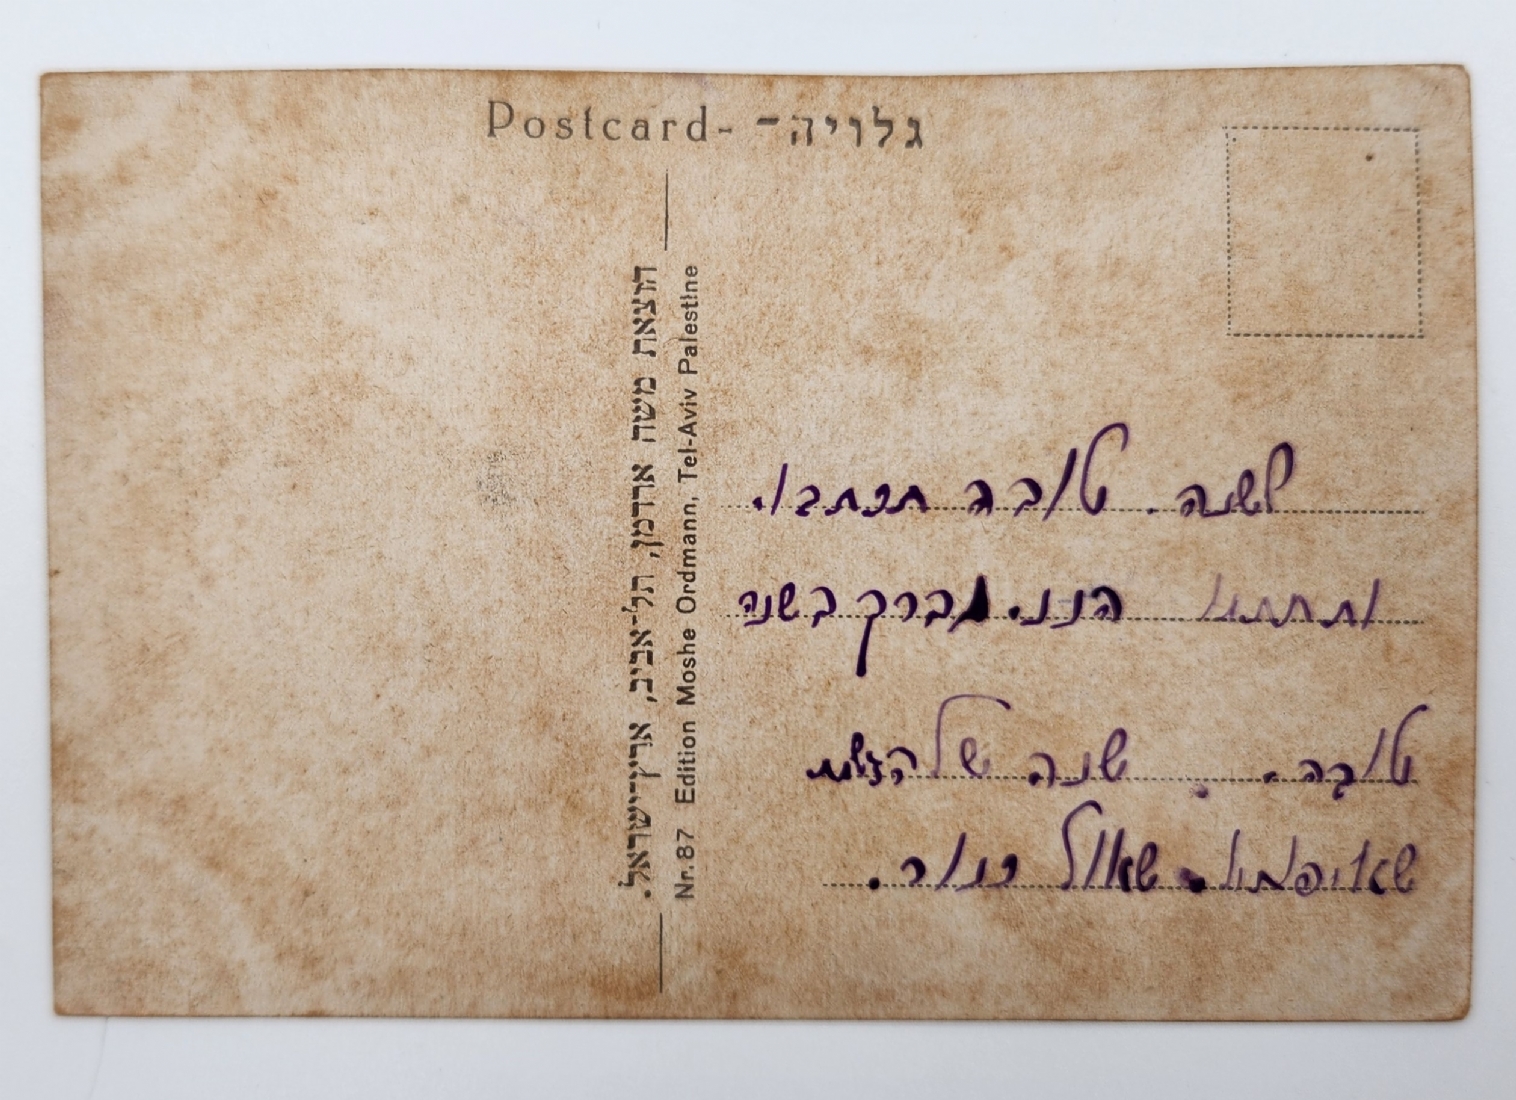 Postcard- גלויה-
הוצאת משה ארדמן, תל-אביב, ארץ-ישראל.
Nr.87 Edition Moshe Ordmann, Tel-Aviv Palestine
לשנה טובה תכתבו.
ותחתמו הנני מברך בשנה
טובה. שנה של הגשת
שאיפתנו. שאול